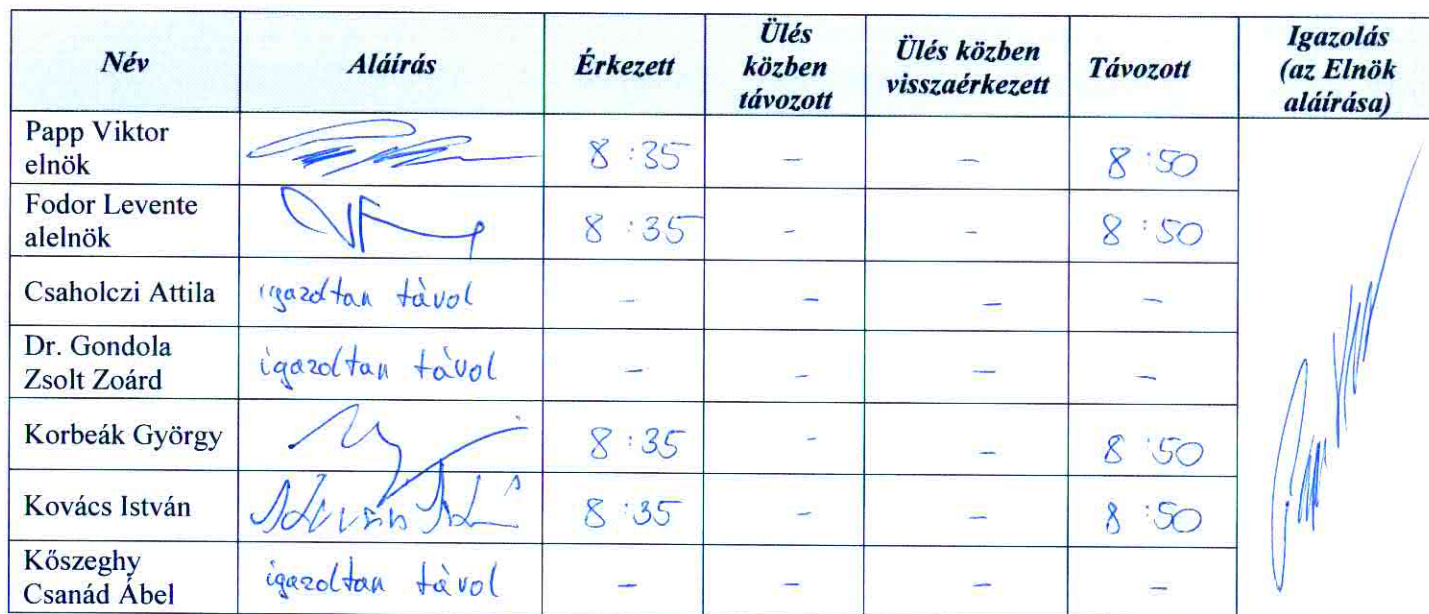 Név Aláírás Érkezett Ülés közben távozott Ülés közben visszaérkezett Távozott Igazolás (az Elnök aláírása)
Papp Viktor elnök 8:35 – – 8:50
Fodor Levente alelnök 8:35 – – 8:50
Csaholczi Attila igazoltan távol – – – –
Dr. Gondola Zsolt Zoárd igazoltan távol – – – –
Korbeák György 8:35 – – 8:50
Kovács István 8:35 – – 8:50
Kőszeghy Csanád Ábel igazoltan távol – – – –